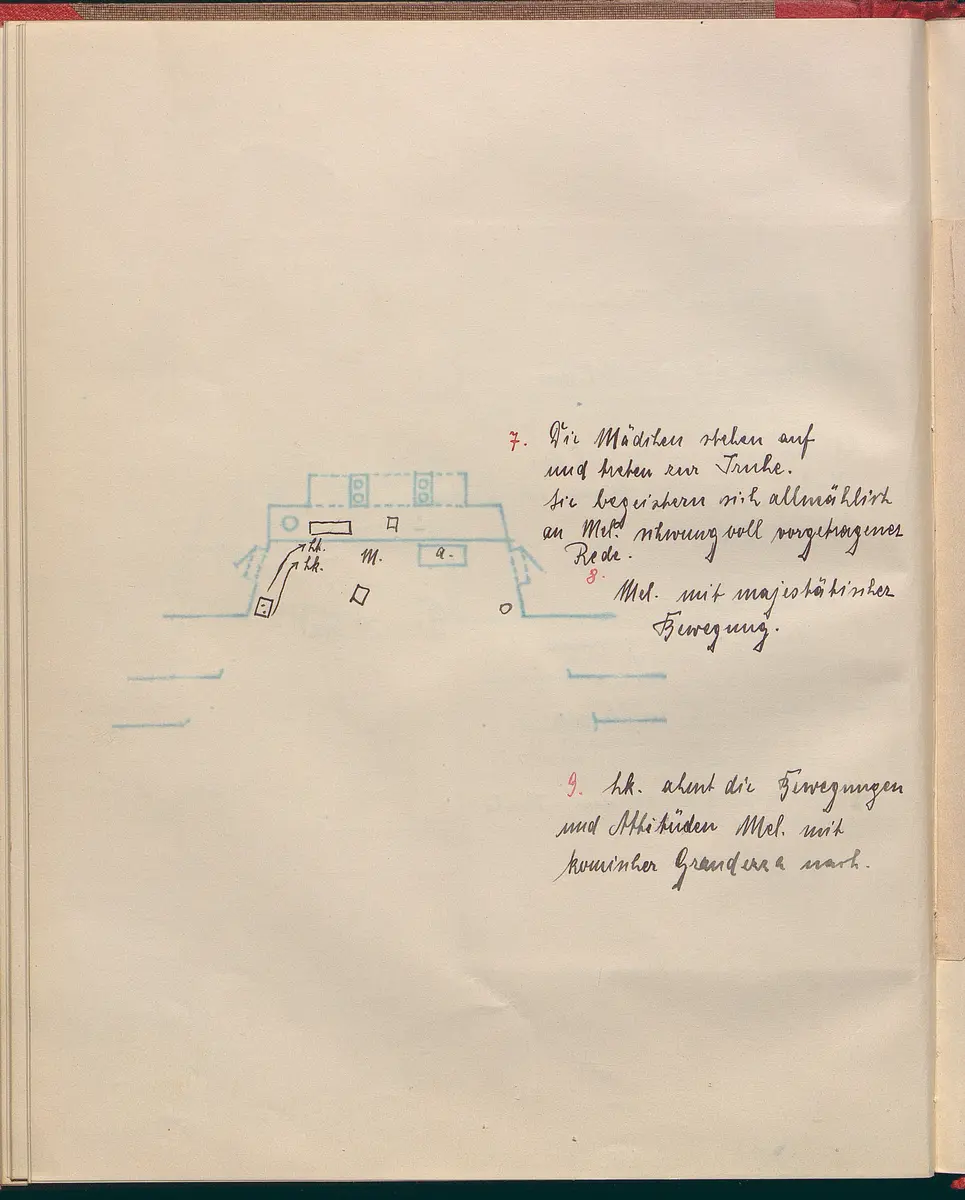 7. Die Mädchen stehen auf
und treten zur Truhe.
Sie begeistern sich allmählich
an Mel. schwungvoll vorgetragener
Rede.
8.
Mel. mit majestätischer
Bewegung.
hk.
hk.
M.
a.
9. hk. ahmt die Bewegungen
und Attitüden Mel. mit
komischer Grandezza nach.